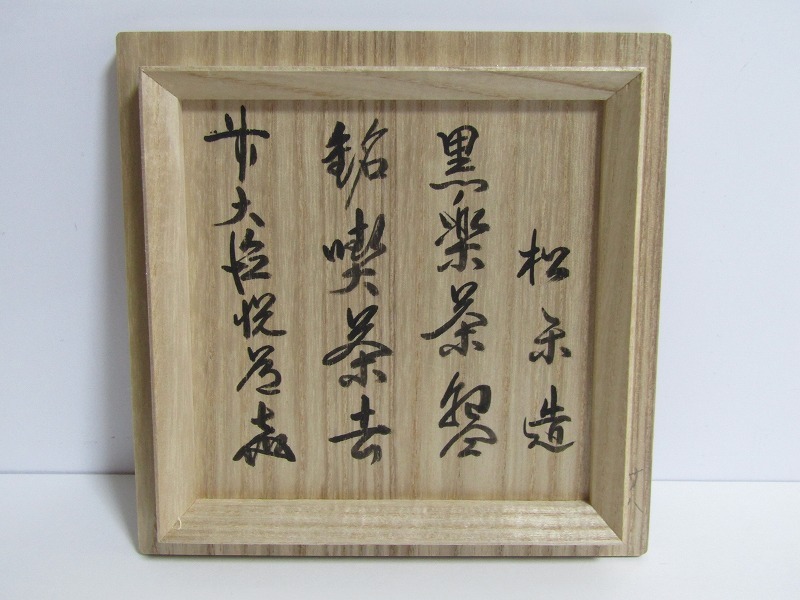 松楽造
黒楽茶盌
銘喫茶去
前大徳悦道